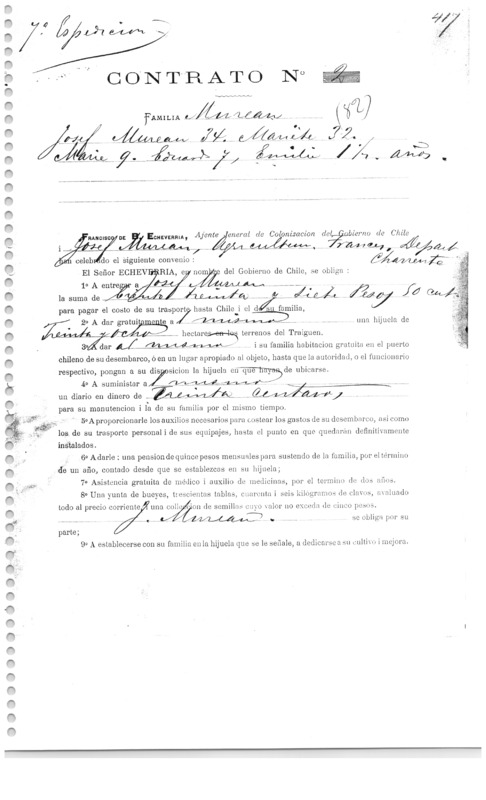 7ª Espedicion
417
CONTRATO Nº 2
FAMILIA Mureau (82)
Josef Mureau 34. Mariete 32.
Marie 9. Eduard 7, Emilie 1 ½. años.
FRANCISCO DE B. ECHEVERRIA, Ajente Jeneral de Colonizacion del Gobierno de Chile
i Josef Mureau, Agricultur. Frances, Depart
Charrente
han celebrado el siguiente convenio:
El Señor ECHEVERRIA, en nombre del Gobierno de Chile, se obliga:
1º A entregar a Josef Mureau
la suma de Ciento treinta y siete Pesos 50 cent.
para pagar el costo de su trasporte hasta Chile i el de su familia,
2º A dar gratuitamente a l mismo una hijuela de
Treinta y ocho hectares en los terrenos del Traiguen.
3º A dar al mismo i su familia habitacion gratuita en el puerto
chileno de su desembarco, ó en un lugar apropiado al objeto, hasta que la autoridad, o el funcionario
respectivo, pongan a su disposicion la hijuela en que hayan de ubicarse.
4º A suministar a l mismo
un diario en dinero de Treinta centavos,
para su manutencion i la de su familia por el mismo tiempo.
5º A proporcionarle los auxilios necesarios para costear los gastos de su desembarco, asi como
los de su trasporte personal i de sus equipajes, hasta el punto en que quedarán definitivamente
instalados.
6º A darle: una pension de quince pesos mensuales para sustendo de la familia, por el término
de un año, contado desde que se establezcos en su hijuela;
7º Asistencia gratuita de médico i auxilio de medicinas, por el termino de dos años.
8º Una yunta de bueyes, trescientos tablas, cuarenta i seis kilogramos de clavos, avaluado
todo al precio corriente i una colleccion de semillas cuyo valor no exceda de cinco pesos.
J. Mureau. se obliga por su
parte;
9º A establecerse con su familia en la hijuela que se le señale, a dedicarse a su cultivo i mejora.